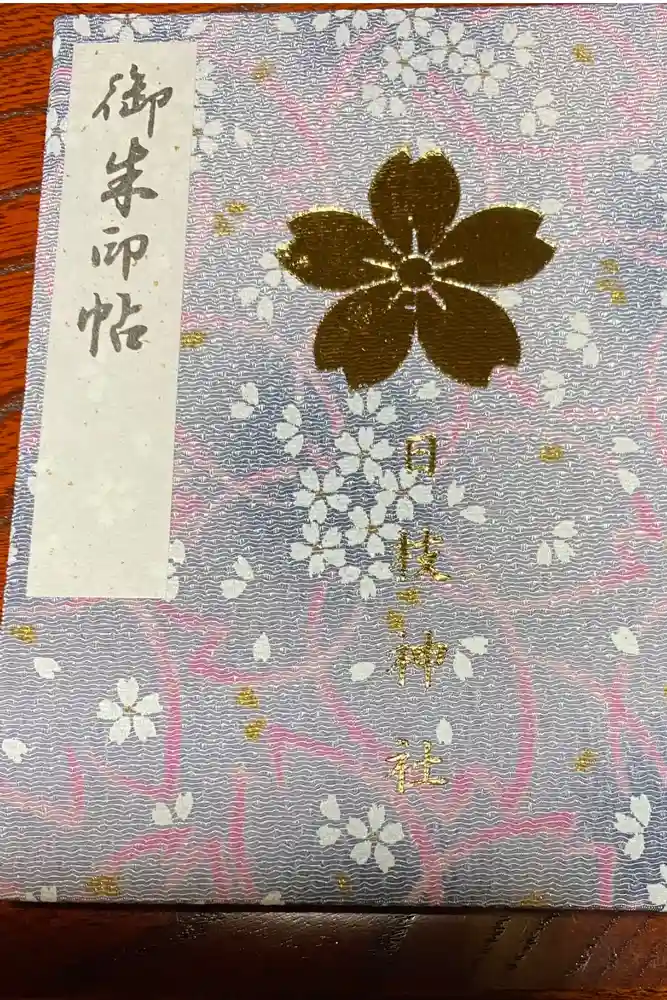 御朱印帖
日枝神社